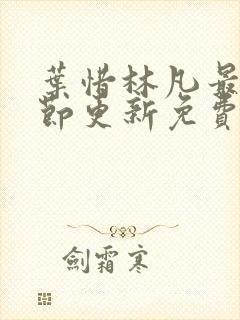 葉惜林凡最
節更新免費
劍霜寒